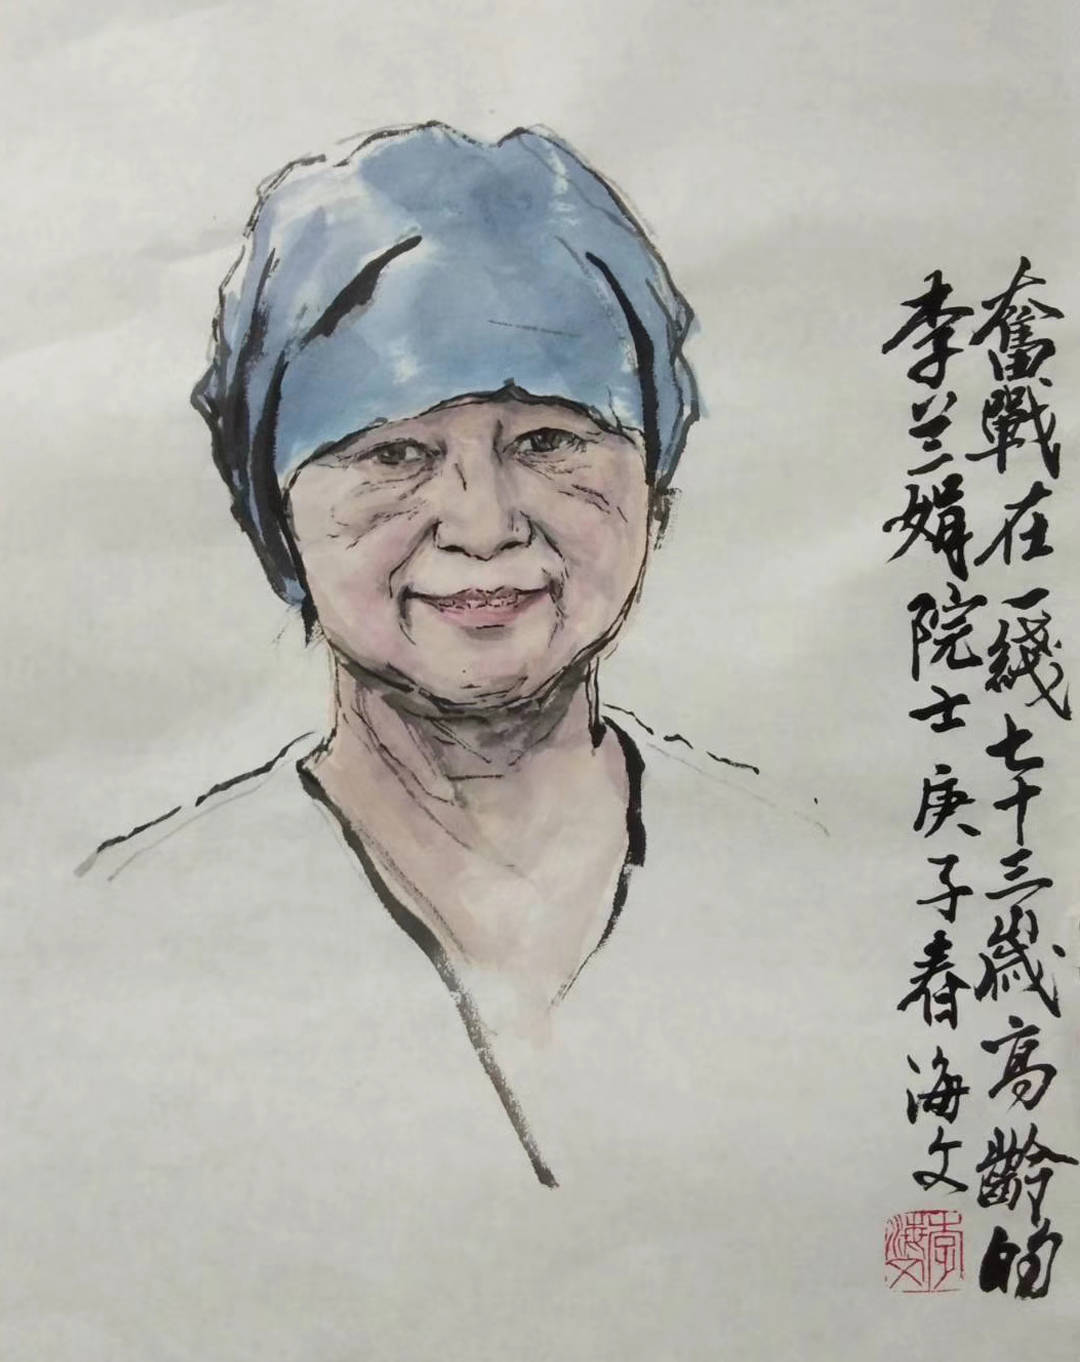 奮戰在一綫七十三歲高齡的
李兰娟院士 庚子春 海文
李海文